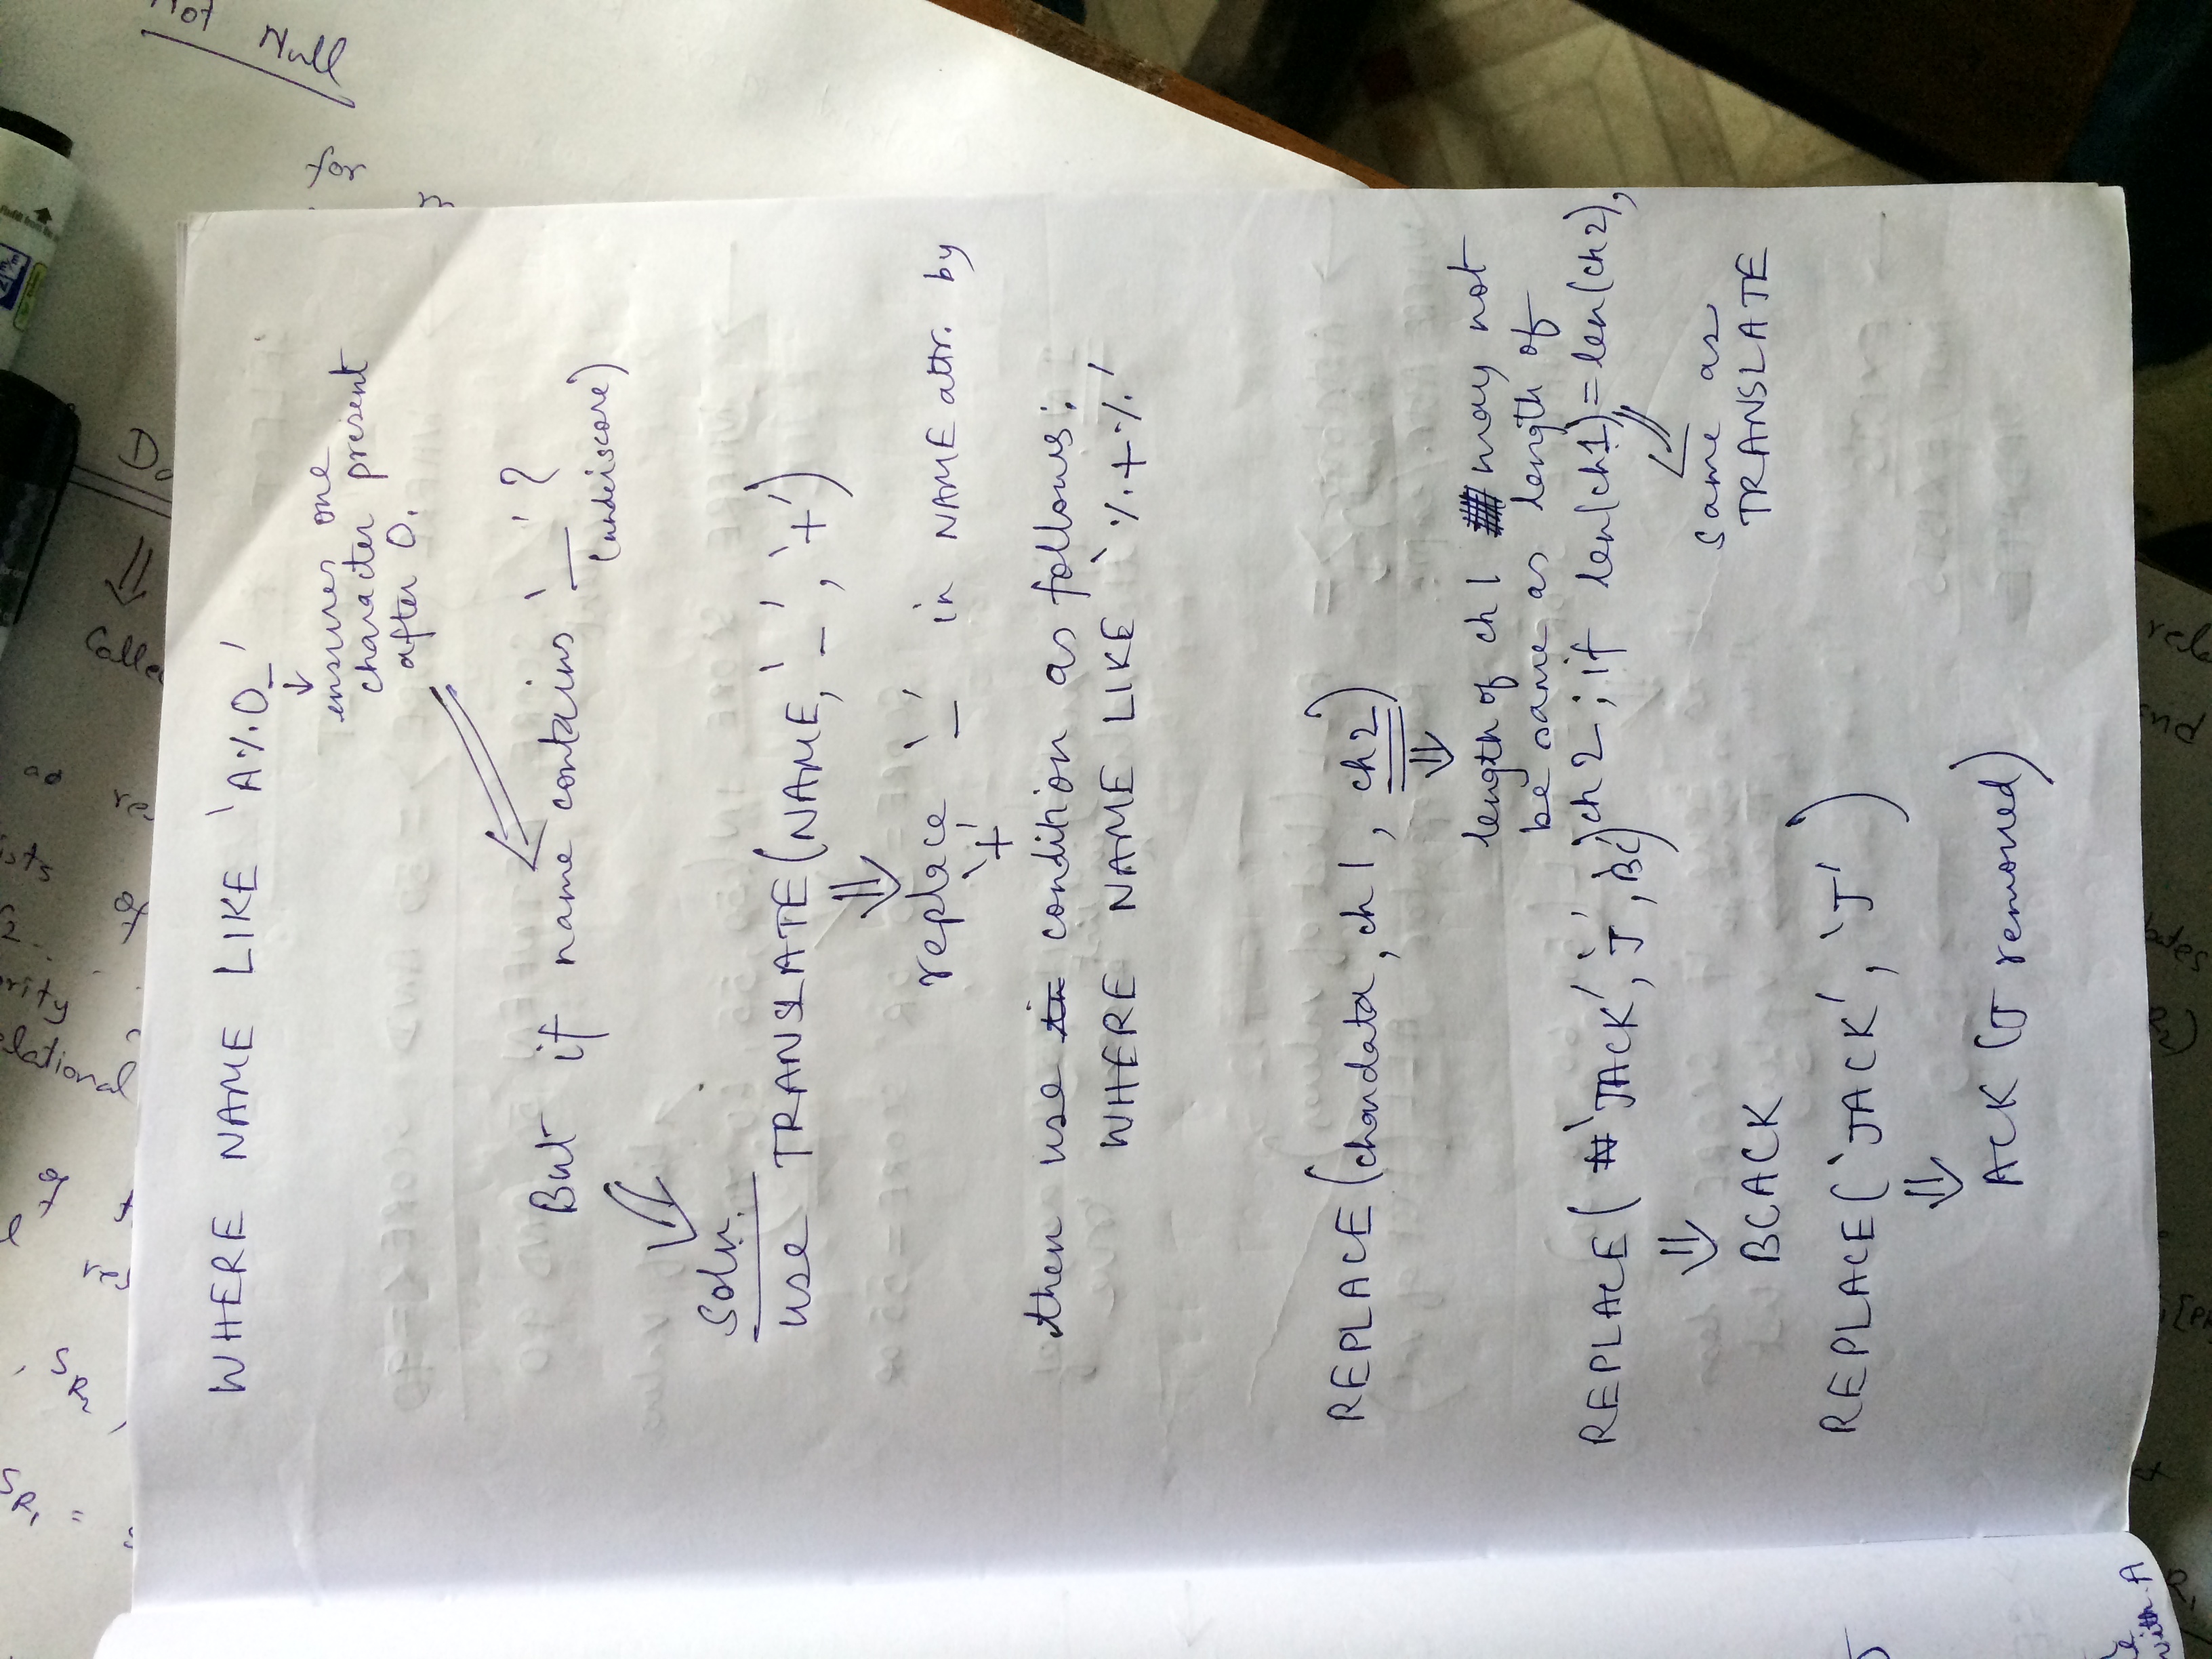 WHERE NAME LIKE 'A%O_'
↓
ensures one
character present
after O.
But if name contains '_'?
(underscore)
Soln.
use TRANSLATE(NAME, '_', '+')
⇓
replace '_' in NAME attr. by
'+'
then use condition as follows:
WHERE NAME LIKE '%+%'
REPLACE(chardata, ch1, ch2)
⇓
length of ch1 may not
be same as length of
ch2; if len(ch1)=len(ch2),
same as
TRANSLATE
REPLACE('JACK', 'J', 'BC')
⇓
BCACK
REPLACE('JACK', 'J')
⇓
ACK (J removed)
Not Null
for
with A